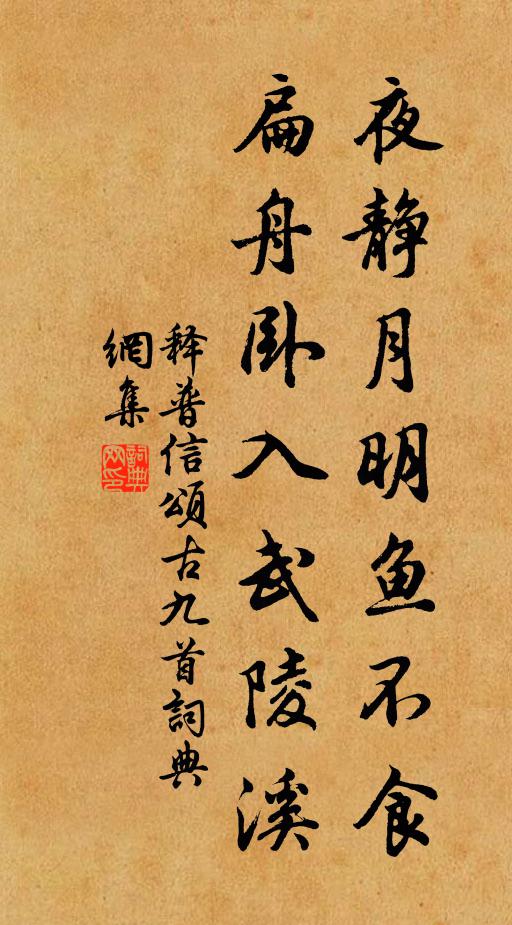 夜静月明鱼不食
扁舟卧入武陵溪
释普信頌古九首詞典
網集
詞典网印